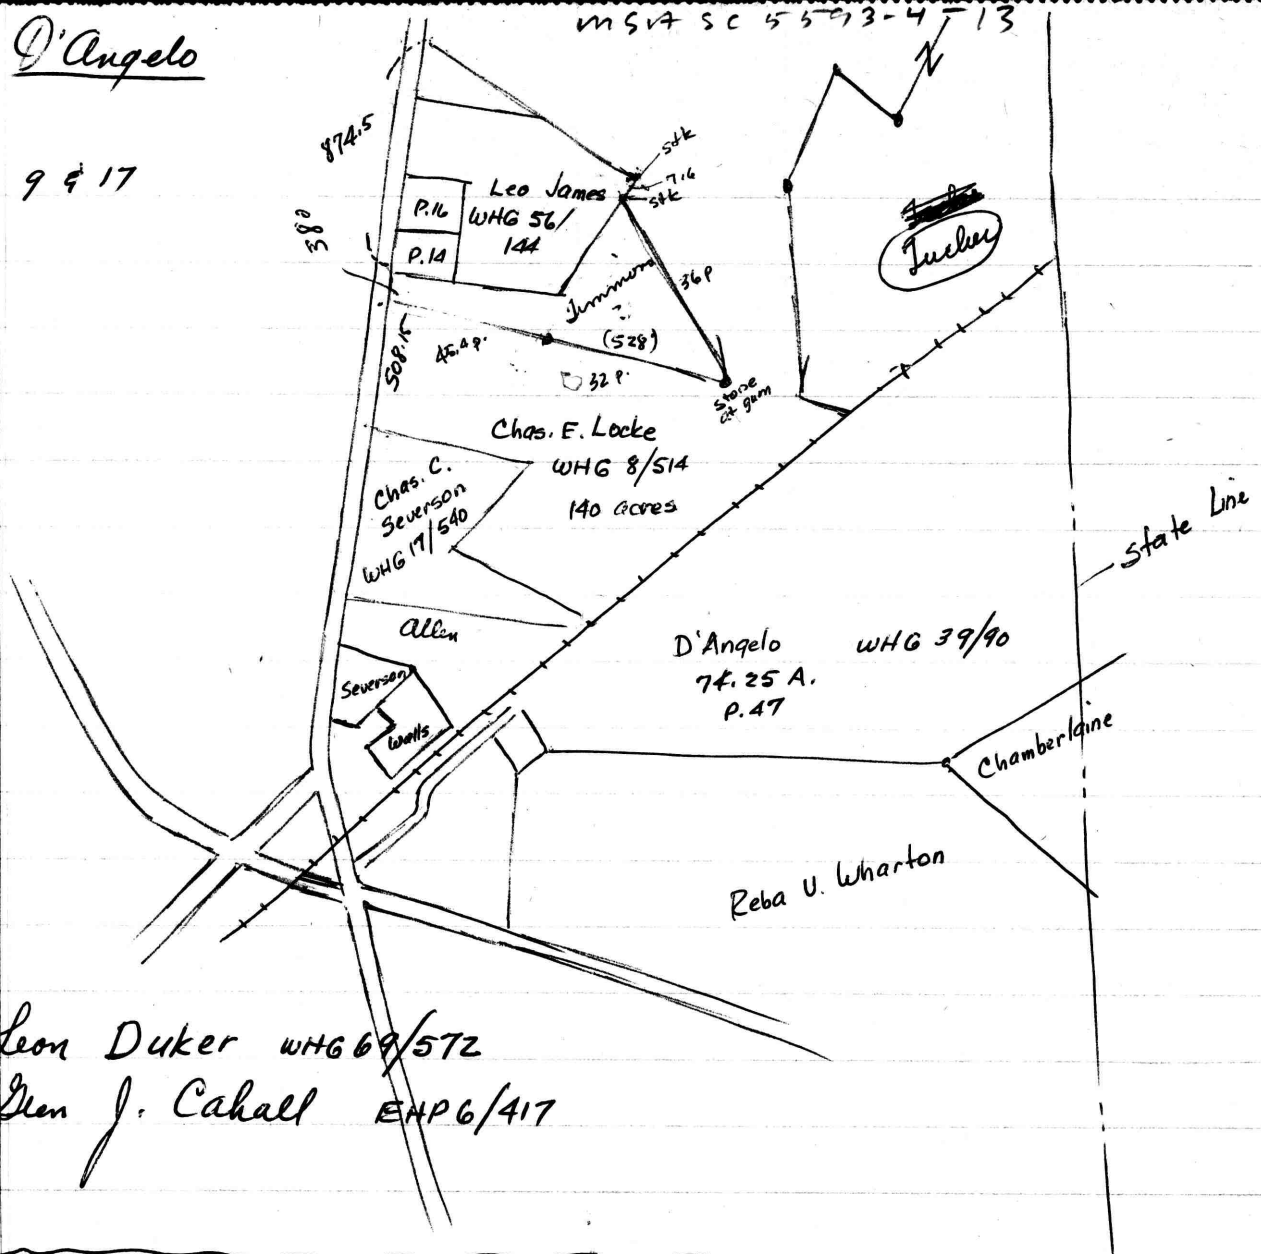 D'Angelo
MSA SC 5593-4-13
N
9 & 17
874.5
580
508.15
stk
7.6
stk
Leo James
WHG 56/
144
P.16
P.14
Timmons
?
(528)
36 P
45.4 P.
32 P.
stone
at gum
Tucker
Chas. E. Locke
WHG 8/514
140 acres
Chas. C.
Severson
WHG 17/540
Allen
Severson
Wells
State Line
D'Angelo WHG 39/90
74.25 A.
P.47
Chamberlaine
Reba U. Wharton
Leon Duker WHG 69/572
Glen J. Cahall EHP 6/417